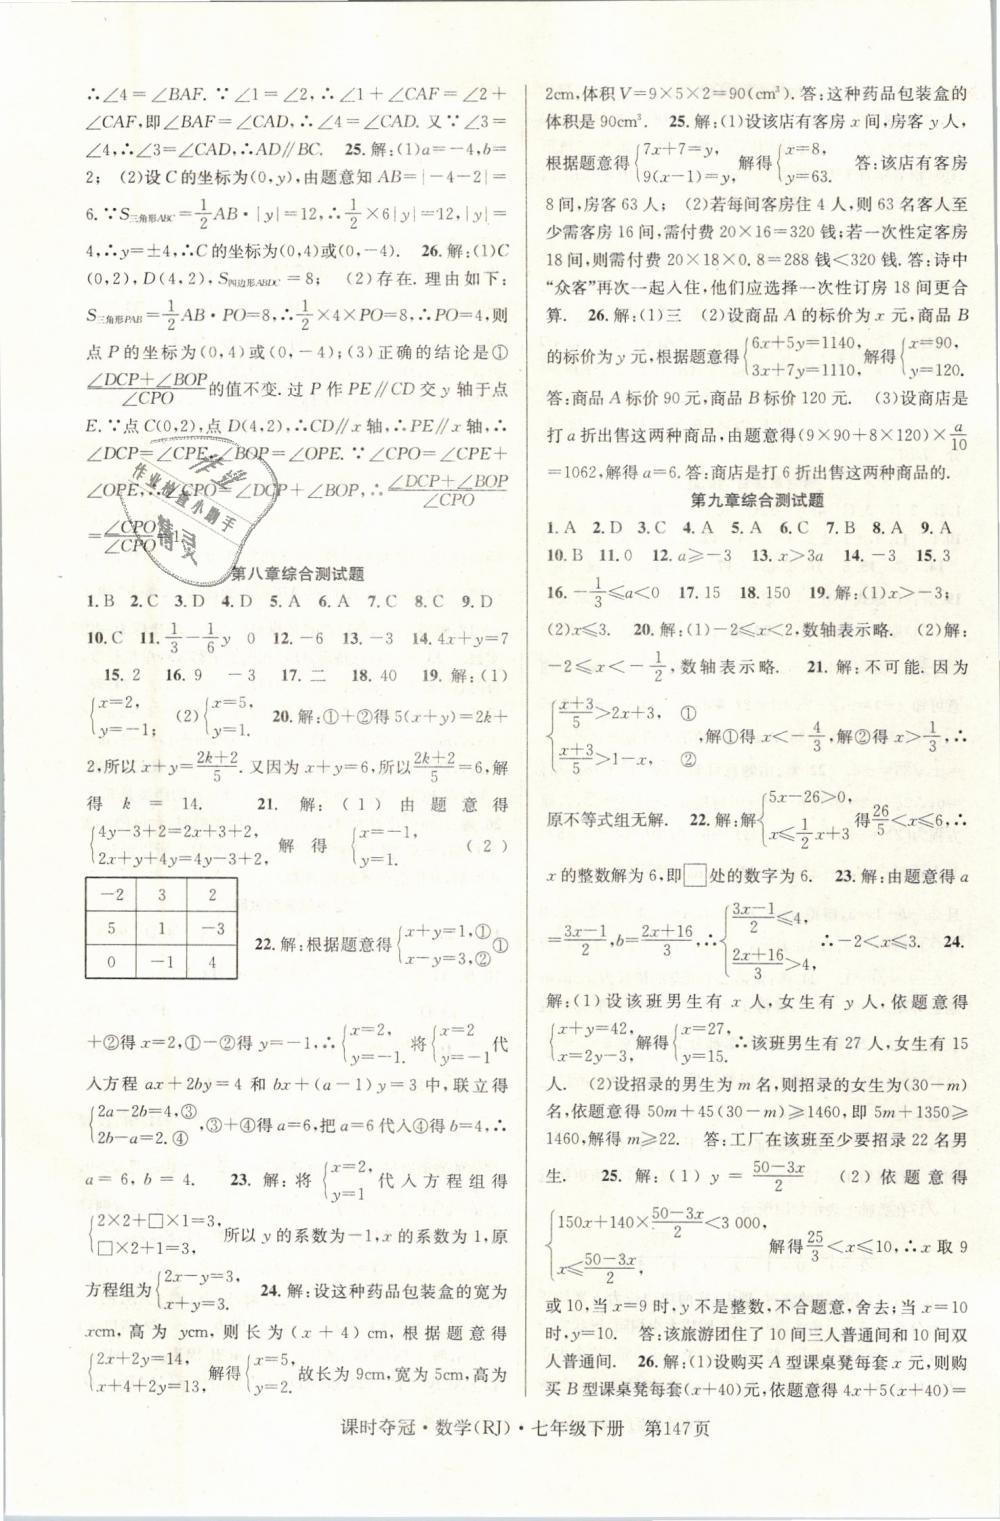 ∴∠4=∠BAF. ∵∠1=∠2,∴∠1+∠CAF=∠2+
∠CAF,即∠BAF=∠CAD,∴∠4=∠CAD. 又∵∠3=
∠4,∴∠3=∠CAD,∴AD∥BC. 25. 解:(1)a=-4,b=
2; (2)设C的坐标为(0,y),由题意知AB=|-4-2|=
6. ∵S三角形ABC=1/2AB·|y|=12,∴1/2×6|y|=12,|y|=
4,∴y=±4,∴C的坐标为(0,4)或(0,-4). 26. 解:(1)C
(0,2),D(4,2),S四边形ABDC=8; (2)存在. 理由如下:
S三角形PAB=1/2AB·PO=8,∴1/2×4×PO=8,∴PO=4,则
点P的坐标为(0,4)或(0,-4);(3)正确的结论是①
(∠DCP+∠BOP)/∠CPO的值不变. 过P作PE∥CD交y轴于点
E. ∵点C(0,2),点D(4,2),∴CD∥x轴,∴PE∥x轴,∴
∠DCP=∠CPE,∠BOP=∠OPE. ∵∠CPO=∠CPE+
∠OPE,∴∠CPO=∠DCP+∠BOP,∴(∠DCP+∠BOP)/∠CPO
=∠CPO/∠CPO=1.
第八章综合测试题
1. B 2. C 3. D 4. D 5. A 6. A 7. C 8. C 9. D
10. C 11. 1/3-1/6y 0 12. -6 13. -3 14. 4x+y=7
15. 2 16. 9 -3 17. 二 18. 40 19. 解:(1)
{x=2, y=-1; (2){x=5, y=1. 20. 解:①+②得5(x+y)=2k+
2,所以x+y=(2k+2)/5. 又因为x+y=6,所以(2k+2)/5=6,解
得k=14. 21. 解:(1)由题意得
{4y-3+2=2x+3+2, 2x+y+4y=4y-3+2, 解得{x=-1, y=1. (2)
-2 3 2
5 1 -3
0 -1 4
22. 解:根据题意得{x+y=1,① x-y=3,② ①
+②得x=2,①-②得y=-1,∴{x=2, y=-1. 将{x=2 y=-1代
入方程ax+2by=4和bx+(a-1)y=3中,联立得
{2a-2b=4,③ 2b-a=2.④,③+④得a=6,把a=6代入④得b=4,∴
a=6,b=4. 23. 解:将{x=2, y=1代入方程组得
{2×2+□×1=3, □×2+1=3, 所以y的系数为-1,x的系数为1,原
方程组为{2x-y=3, x+y=3. 24. 解:设这种药品包装盒的宽为
xcm,高为ycm,则长为(x+4)cm,根据题意得
{2x+2y=14, x+4+2y=13, 解得{x=5, y=2. 故长为9cm,宽为5cm,高为
2cm,体积V=9×5×2=90(cm³). 答:这种药品包装盒的
体积是90cm³. 25. 解:(1)设该店有客房x间,房客y人,
根据题意得{7x+7=y, 9(x-1)=y, 解得{x=8, y=63. 答:该店有客房
8间,房客63人; (2)若每间客房住4人,则63名客人至
少需客房16间,需付费20×16=320钱;若一次性定客房
18间,则需付费20×18×0.8=288钱<320钱. 答:诗中
“众客”再次一起入住,他们应选择一次性订房18间更合
算. 26. 解:(1)三 (2)设商品A的标价为x元,商品B
的标价为y元,根据题意得{6x+5y=1140, 3x+7y=1110, 解得{x=90, y=120.
答:商品A标价90元,商品B标价120元. (3)设商店是
打a折出售这两种商品,由题意得(9×90+8×120)×a/10
=1062,解得a=6. 答:商店是打6折出售这两种商品的.
第九章综合测试题
1. A 2. D 3. C 4. A 5. A 6. C 7. B 8. A 9. A
10. B 11. 0 12. a≥-3 13. x>3a 14. -3 15. 3
16. -1/3≤a<0 17. 15 18. 150 19. 解:(1)x>-3;
(2)x≤3. 20. 解:(1)-2≤x<2,数轴表示略. (2)解:
-2≤x<-1/2,数轴表示略. 21. 解:不可能. 因为
{(x+3)/5>2x+3, ① (x+3)/5>1-x, ② ,解①得x<-4/3,解②得x>1/3,∴
原不等式组无解. 22. 解:解{5x-26>0, x≤1/2x+3 得26/5<x≤6,∴
x的整数解为6,即□处的数字为6. 23. 解:由题意得a
=(3x-1)/2,b=(2x+16)/3,∴{(3x-1)/2≤4, (2x+16)/3>4, ∴-2<x≤3. 24.
解:(1)设该班男生有x人,女生有y人,依题意得
{x+y=42, x=2y-3, 解得{x=27, y=15. ∴该班男生有27人,女生有15
人. (2)设招录的男生为m名,则招录的女生为(30-m)
名,依题意得50m+45(30-m)≥1460,即5m+1350≥
1460,解得m≥22. 答:工厂在该班至少要招录22名男
生. 25. 解:(1)y=(50-3x)/2 (2)依题意得
{150x+140×(50-3x)/2<3 000, x≤(50-3x)/2, 解得25/3<x≤10,∴x取9
或10,当x=9时,y不是整数,不合题意,舍去;当x=10
时,y=10. 答:该旅游团住了10间三人普通间和10间双
人普通间. 26. 解:(1)设购买A型课桌凳每套x元,则购
买B型课桌凳每套(x+40)元,依题意得4x+5(x+40)=
课时夺冠·数学(RJ)·七年级下册 第147页
作业
作业检查小助手
精灵